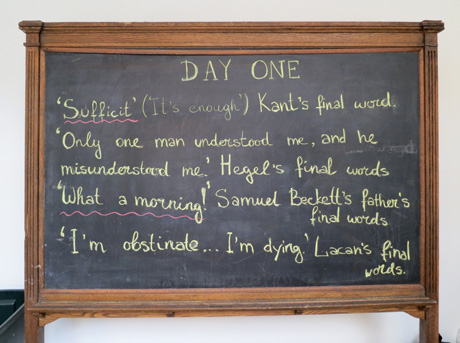 DAY ONE
'Sufficit' ('It's enough') Kant's final word.
'Only one man understood me, and he
misunderstood me.' Hegel's final words
'What a morning!' Samuel Beckett's father's
final words
'I'm obstinate... I'm dying.' Lacan's final
words.